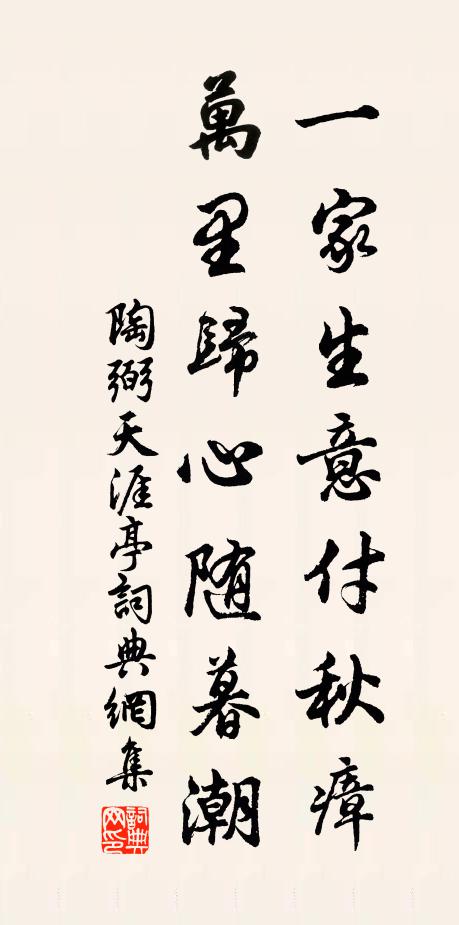 一家生意付秋瘴
萬里歸心随暮潮
陶弼天涯亭詞典網集
詞典網印